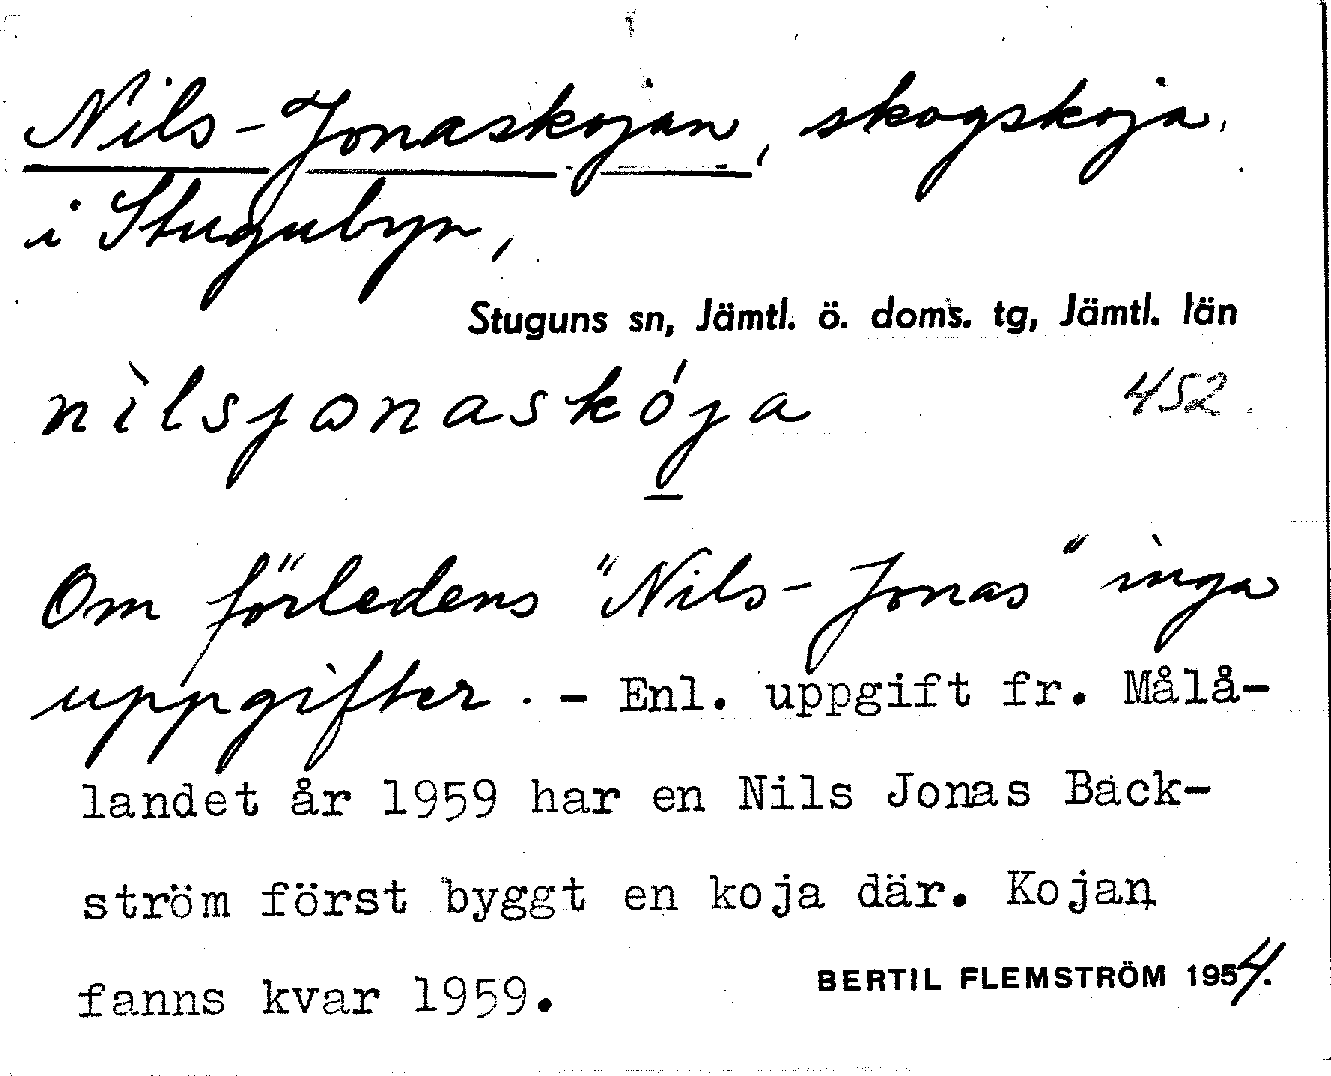 Nils-Jonaskojan, skogskoja
i Stugubyn,
Stuguns sn, Jämtl. ö. doms. tg, Jämtl. län
nìlsjonaskója
452
Om förledens "Nils-Jonas" inga
uppgifter. - Enl. uppgift fr. Målå-
landet år 1959 har en Nils Jonas Bäck-
ström först byggt en koja där. Kojan
fanns kvar 1959.
BERTIL FLEMSTRÖM 1954.